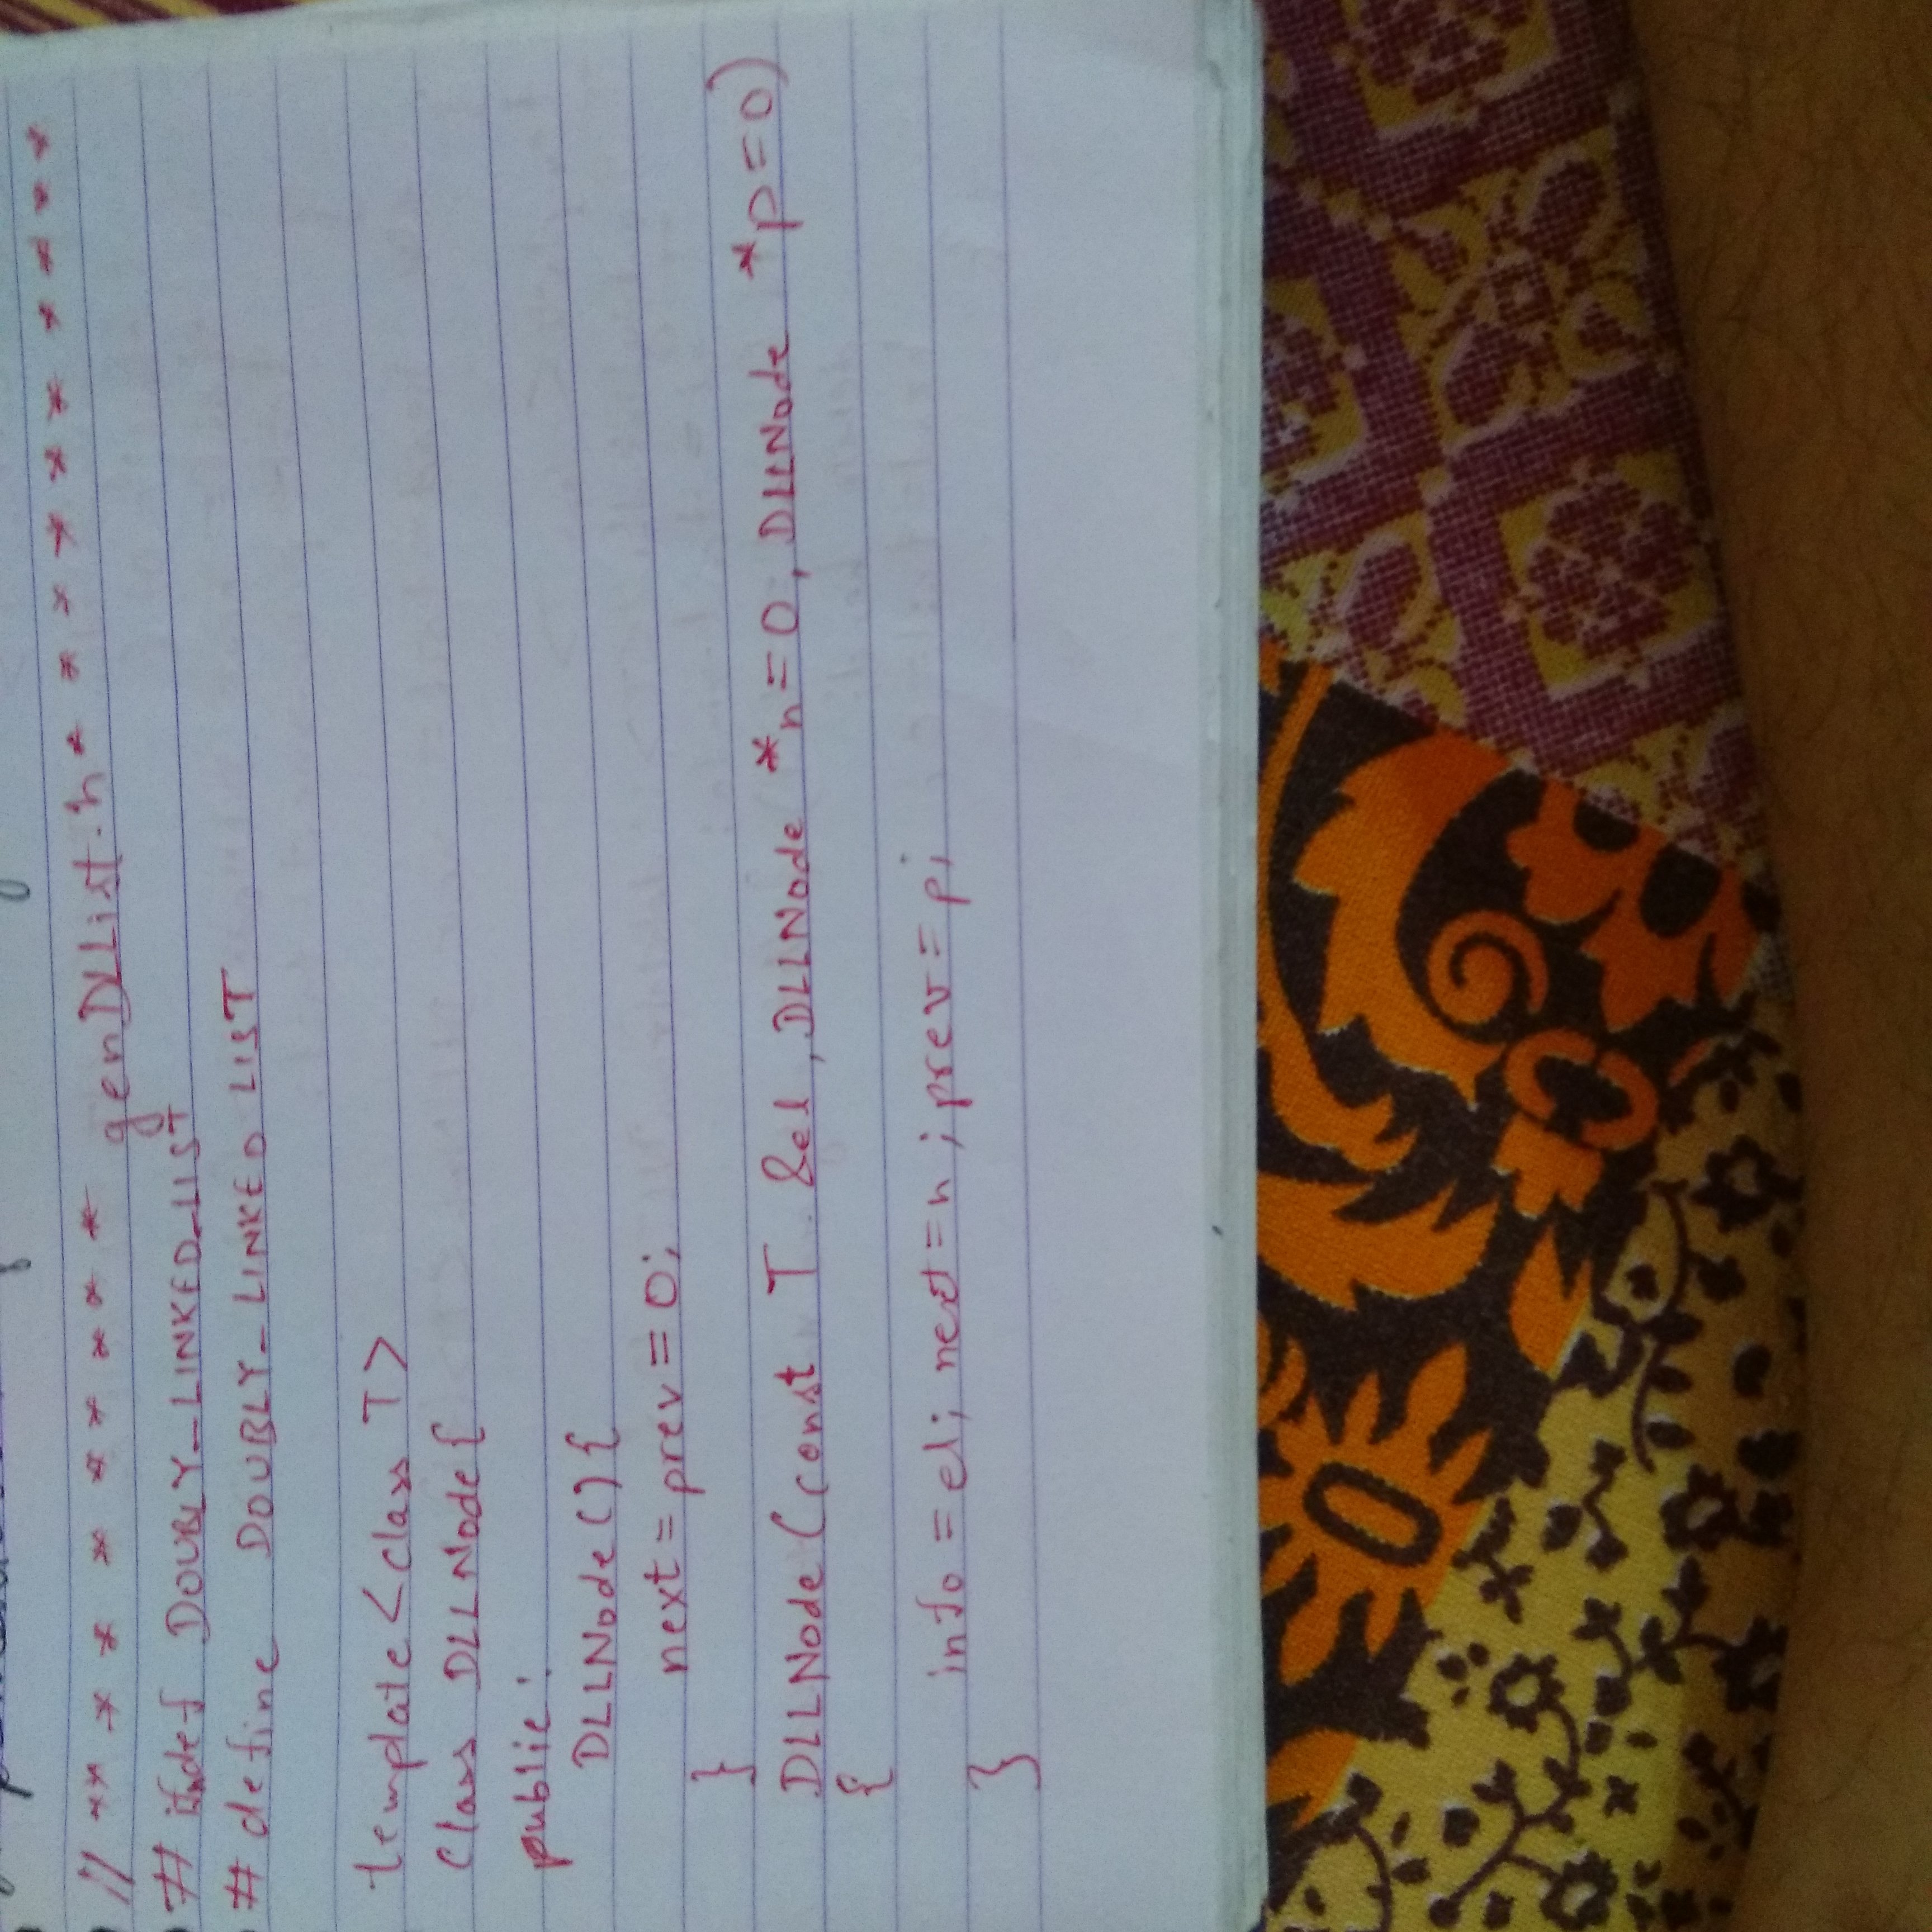 //************ genDLList.h*************
#ifndef DOUBLY_LINKED_LIST
#define DOUBLY_LINKED LIST
template<class T>
class DLLNode{
public:
DLLNode(){
next=prev=0;
}
DLLNode(const T &el,DLLNode *n=0,DLLNode *p=0)
{
info=el; next=n; prev=p;
}